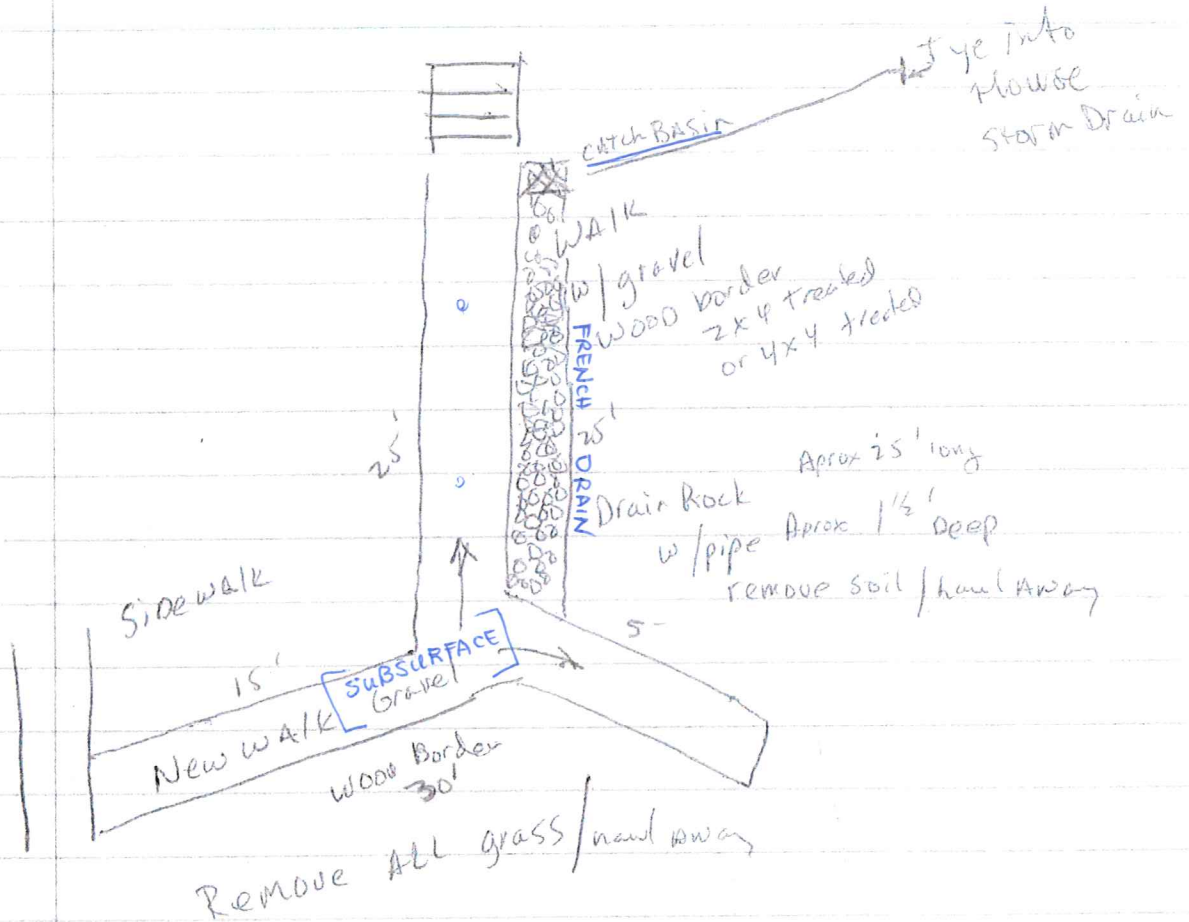 Tye into
House
Storm Drain
CATCH BASIN
WALK
w/gravel
WOOD border
2x4 treated
or 4x4 treted
FRENCH DRAIN
25'
25'
Aprox 25' long
Drain Rock
w/pipe Aprox 1 1/2' Deep
remove soil/haul Away
SiDewalk
15'
5-
[SUBSURFACE]
New WAlk Gravel
Wood Border
30'
Remove ALL grass/haul Away